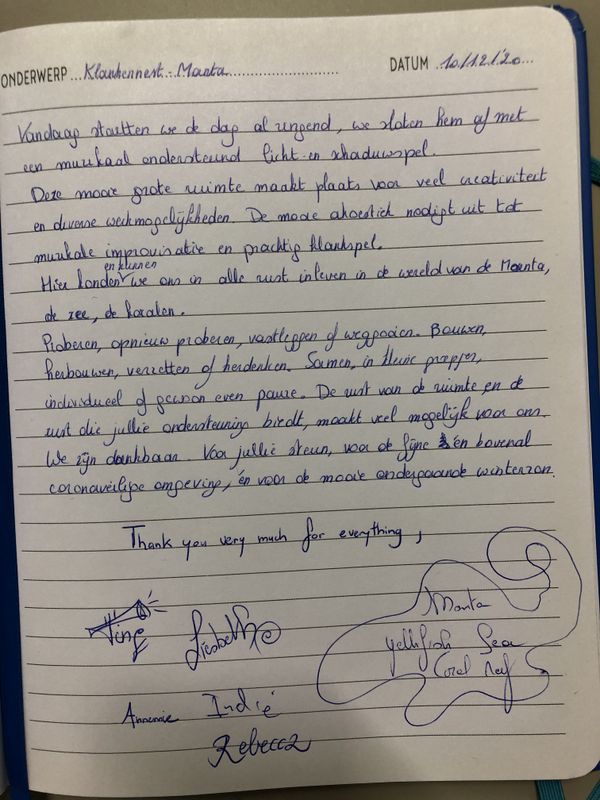 ONDERWERP ... Klankennest - Manta ............ DATUM 10/12/'20 ...
Vandaag startten we de dag al zingend, we sloten hem af met
een muzikaal ondersteund licht-en schaduwspel.
Deze mooie grote ruimte maakt plaats voor veel creativiteit
en diverse werkmogelijkheden. De mooie akoestiek nodigt uit tot
muzikale improvisatie en prachtig klankspel.
en kunnen
Hier konden we ons in alle rust inleven in de wereld van de Manta,
de zee, de koralen.
Proberen, opnieuw proberen, vastleggen of weggooien. Bouwen,
herbouwen, verzetten of herdenken. Samen, in kleine groepjes,
individueel of gewoon even pauze. De rust van de ruimte, en de
rust die jullie ondersteuning biedt, maakt veel mogelijk voor ons.
We zijn dankbaar. Voor jullie steun, voor de fijne én bovenal
coronaveilige omgeving, én voor de mooie ondergaande winterzon.
Thank you very much for everything,
Liesbeth
Manta
yellfish Sea
Coral reef
Annemie Indié
Rebecca